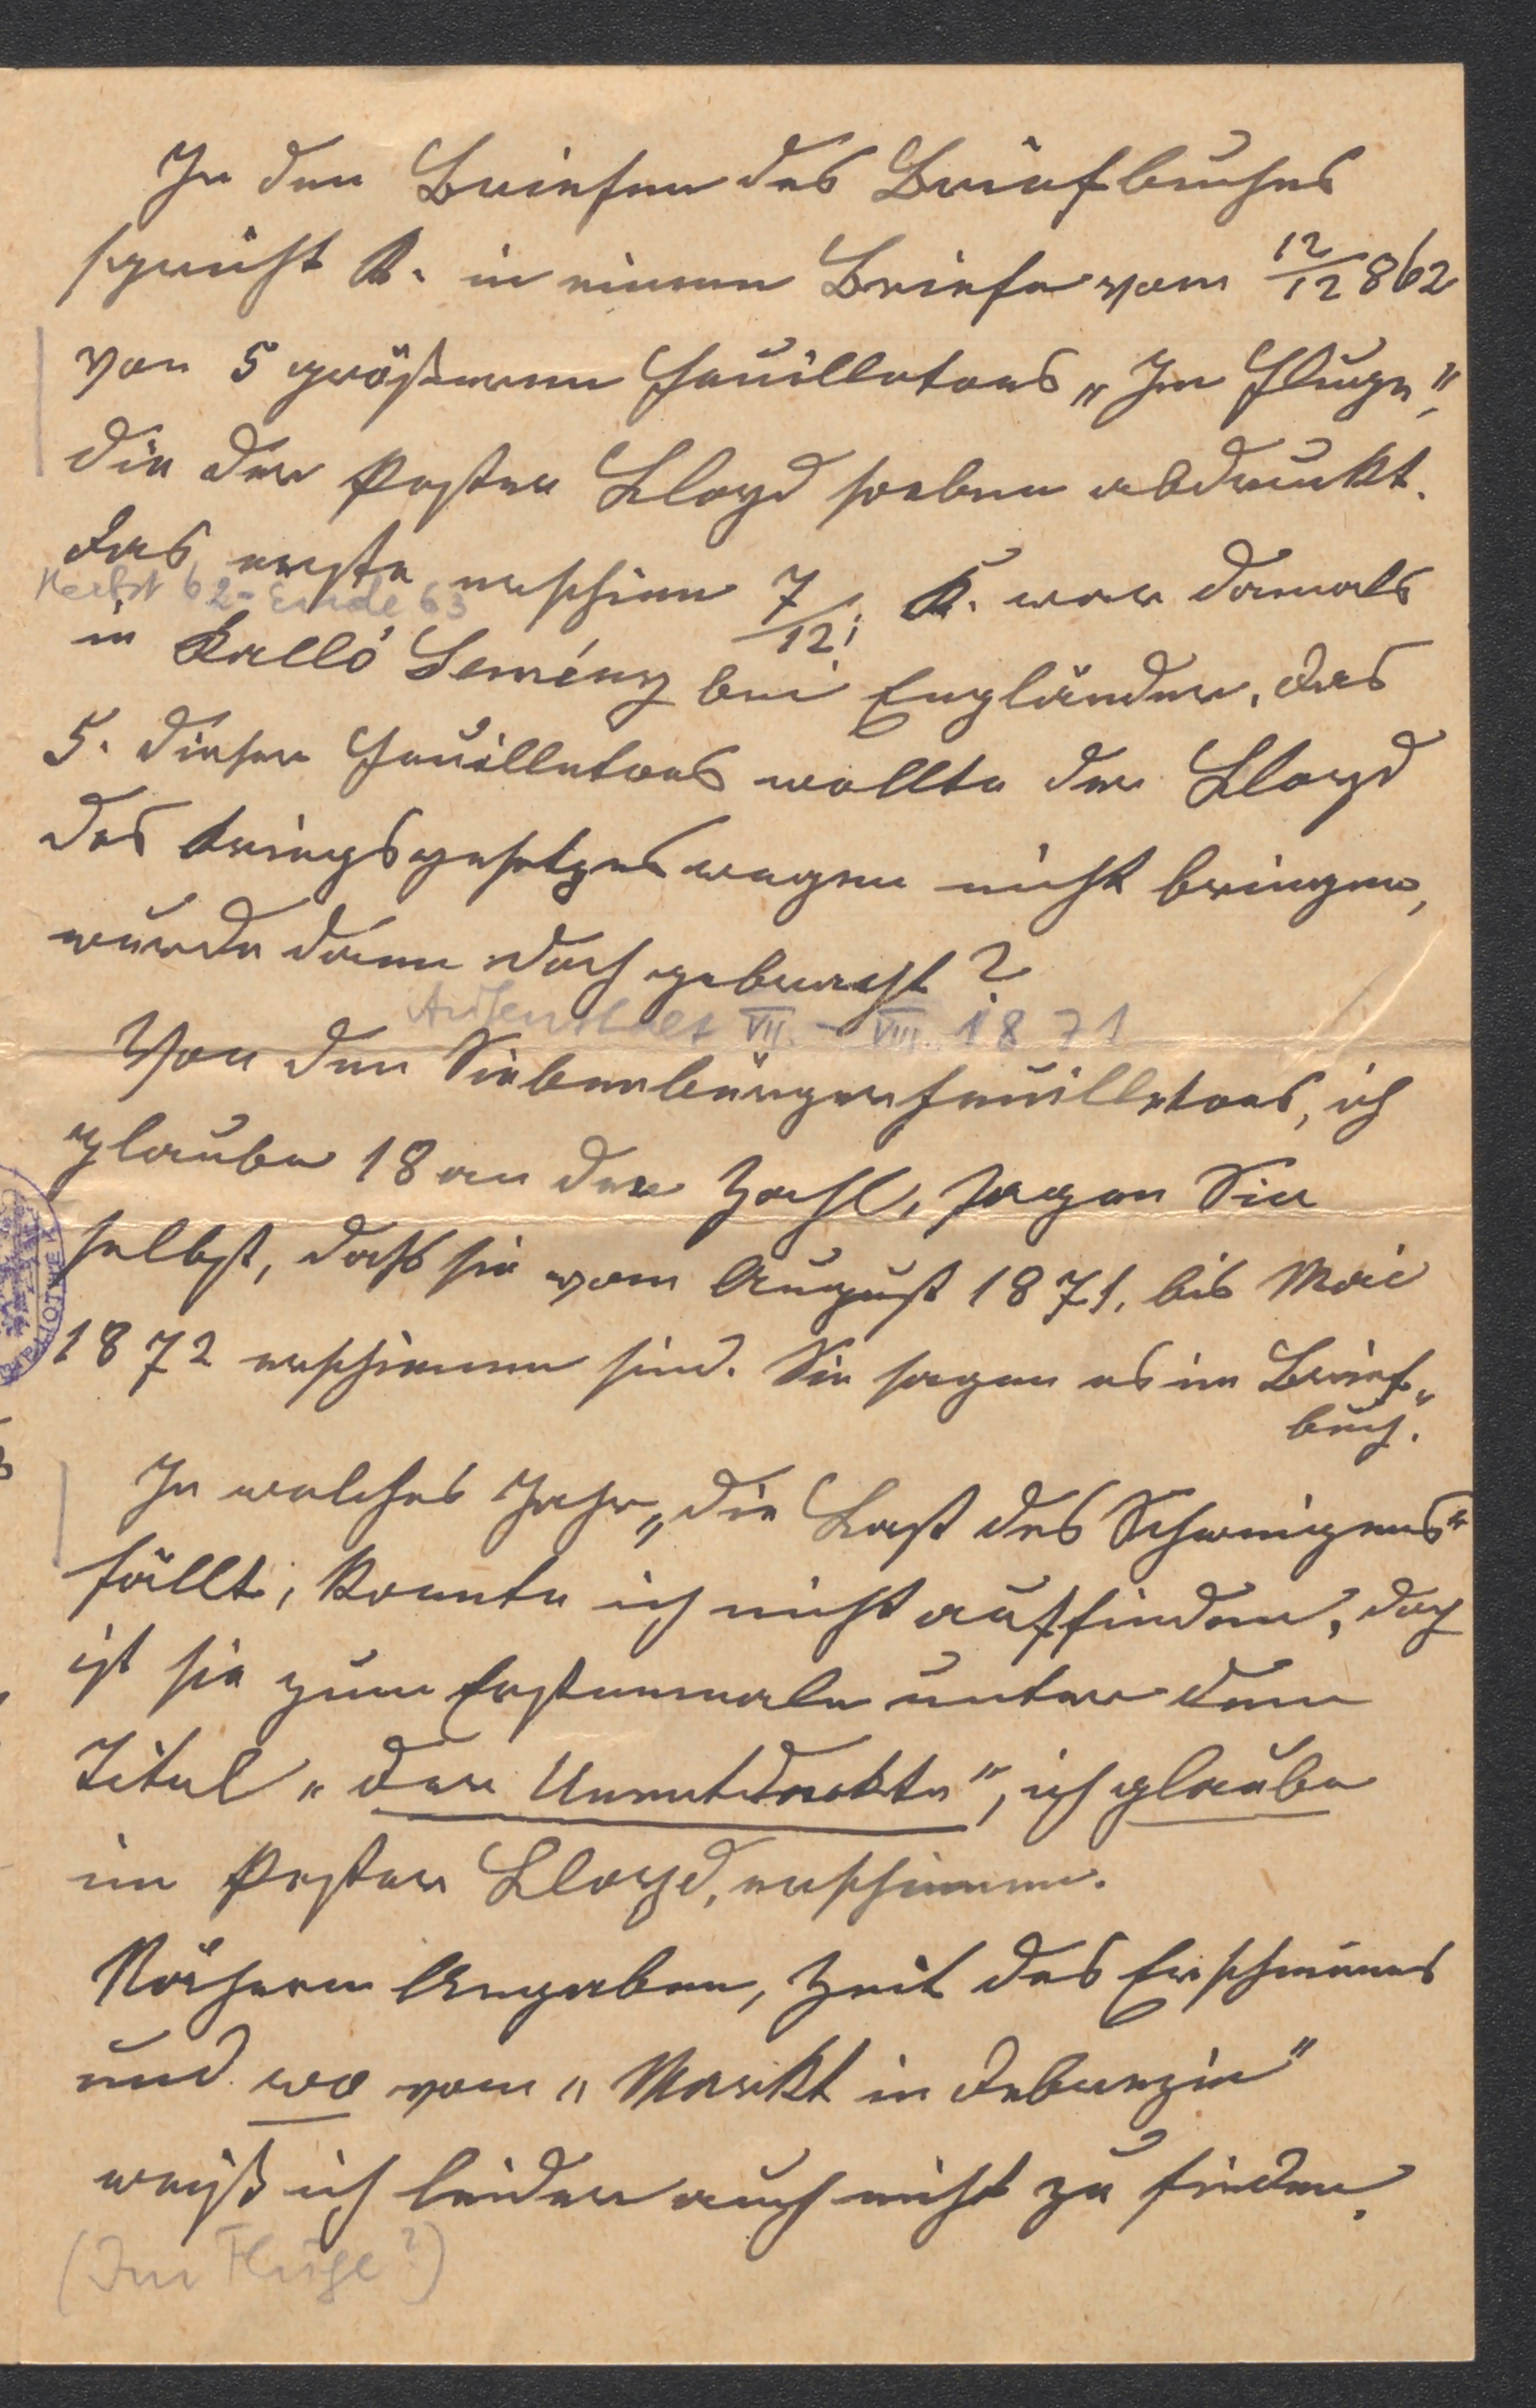 In den Briefen des Briefbuches
spricht K. in einem Briefe vom 12/12 862
von 5 größeren Feuilletons „Im Fluge",
die der Pester Lloyd soeben abdruckt.
Das erste erschien 7/12; K. war damals
Herbst 62 - Ende 63
in Kalló Semény bei Engländer. Das
5. dieser Feuilletons wollte der Lloyd
des Kriegsgesetzes wegen nicht bringen,
wurde dann doch gebracht?
Aufenthalt VII. - VIII. 1871
Von den Siebenbürgerfeuilletons, ich
glaube 18 an der Zahl, sagen Sie
selbst, daß sie vom August 1871. bis Mai
1872 erschienen sind. Sie sagen es im Brief„
buch".
In welches Jahr „die Last des Schweigens"
fällt, konnte ich nicht auffinden, doch
ist sie zum Erstenmale unter dem
Titel „Der Unentdeckte", ich glaube
im Pester Lloyd, erschienen.
Nähere Angaben, Zeit des Erscheinens
und wo vom „Markt in Debrezin"
weiß ich leider auch nicht zu finden.
(Im Fluge?)